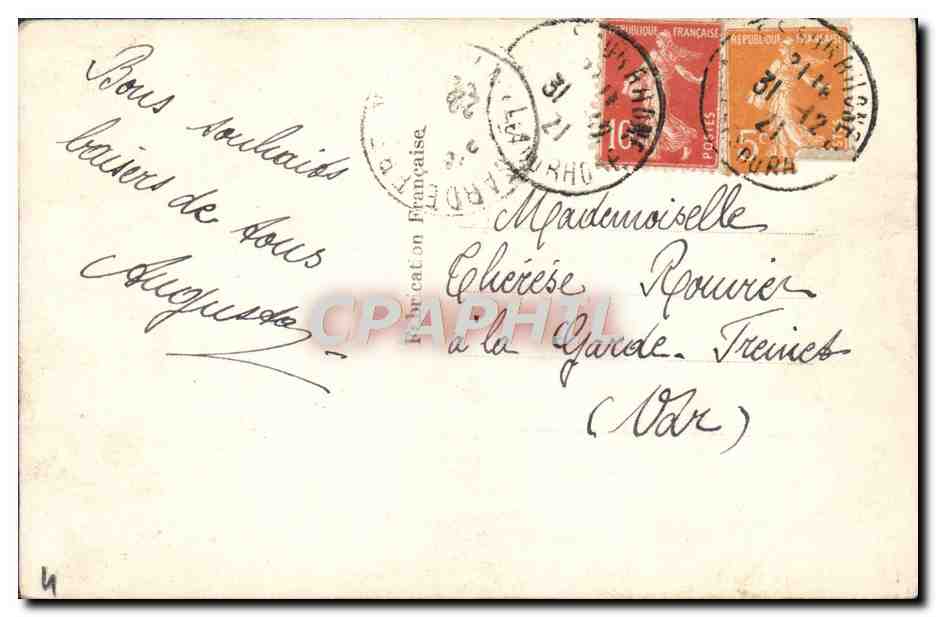 Bons souhaits
baisers de tous
Augusta
Fabrication Française
RÉPUBLIQUE FRANÇAISE
10
POSTES
RÉPUBLIQUE FRANÇAISE
5
31 12
21
Mademoiselle
Thérèse Rouvier
à la Garde-Freinet
(Var)
CPAPHIL
4